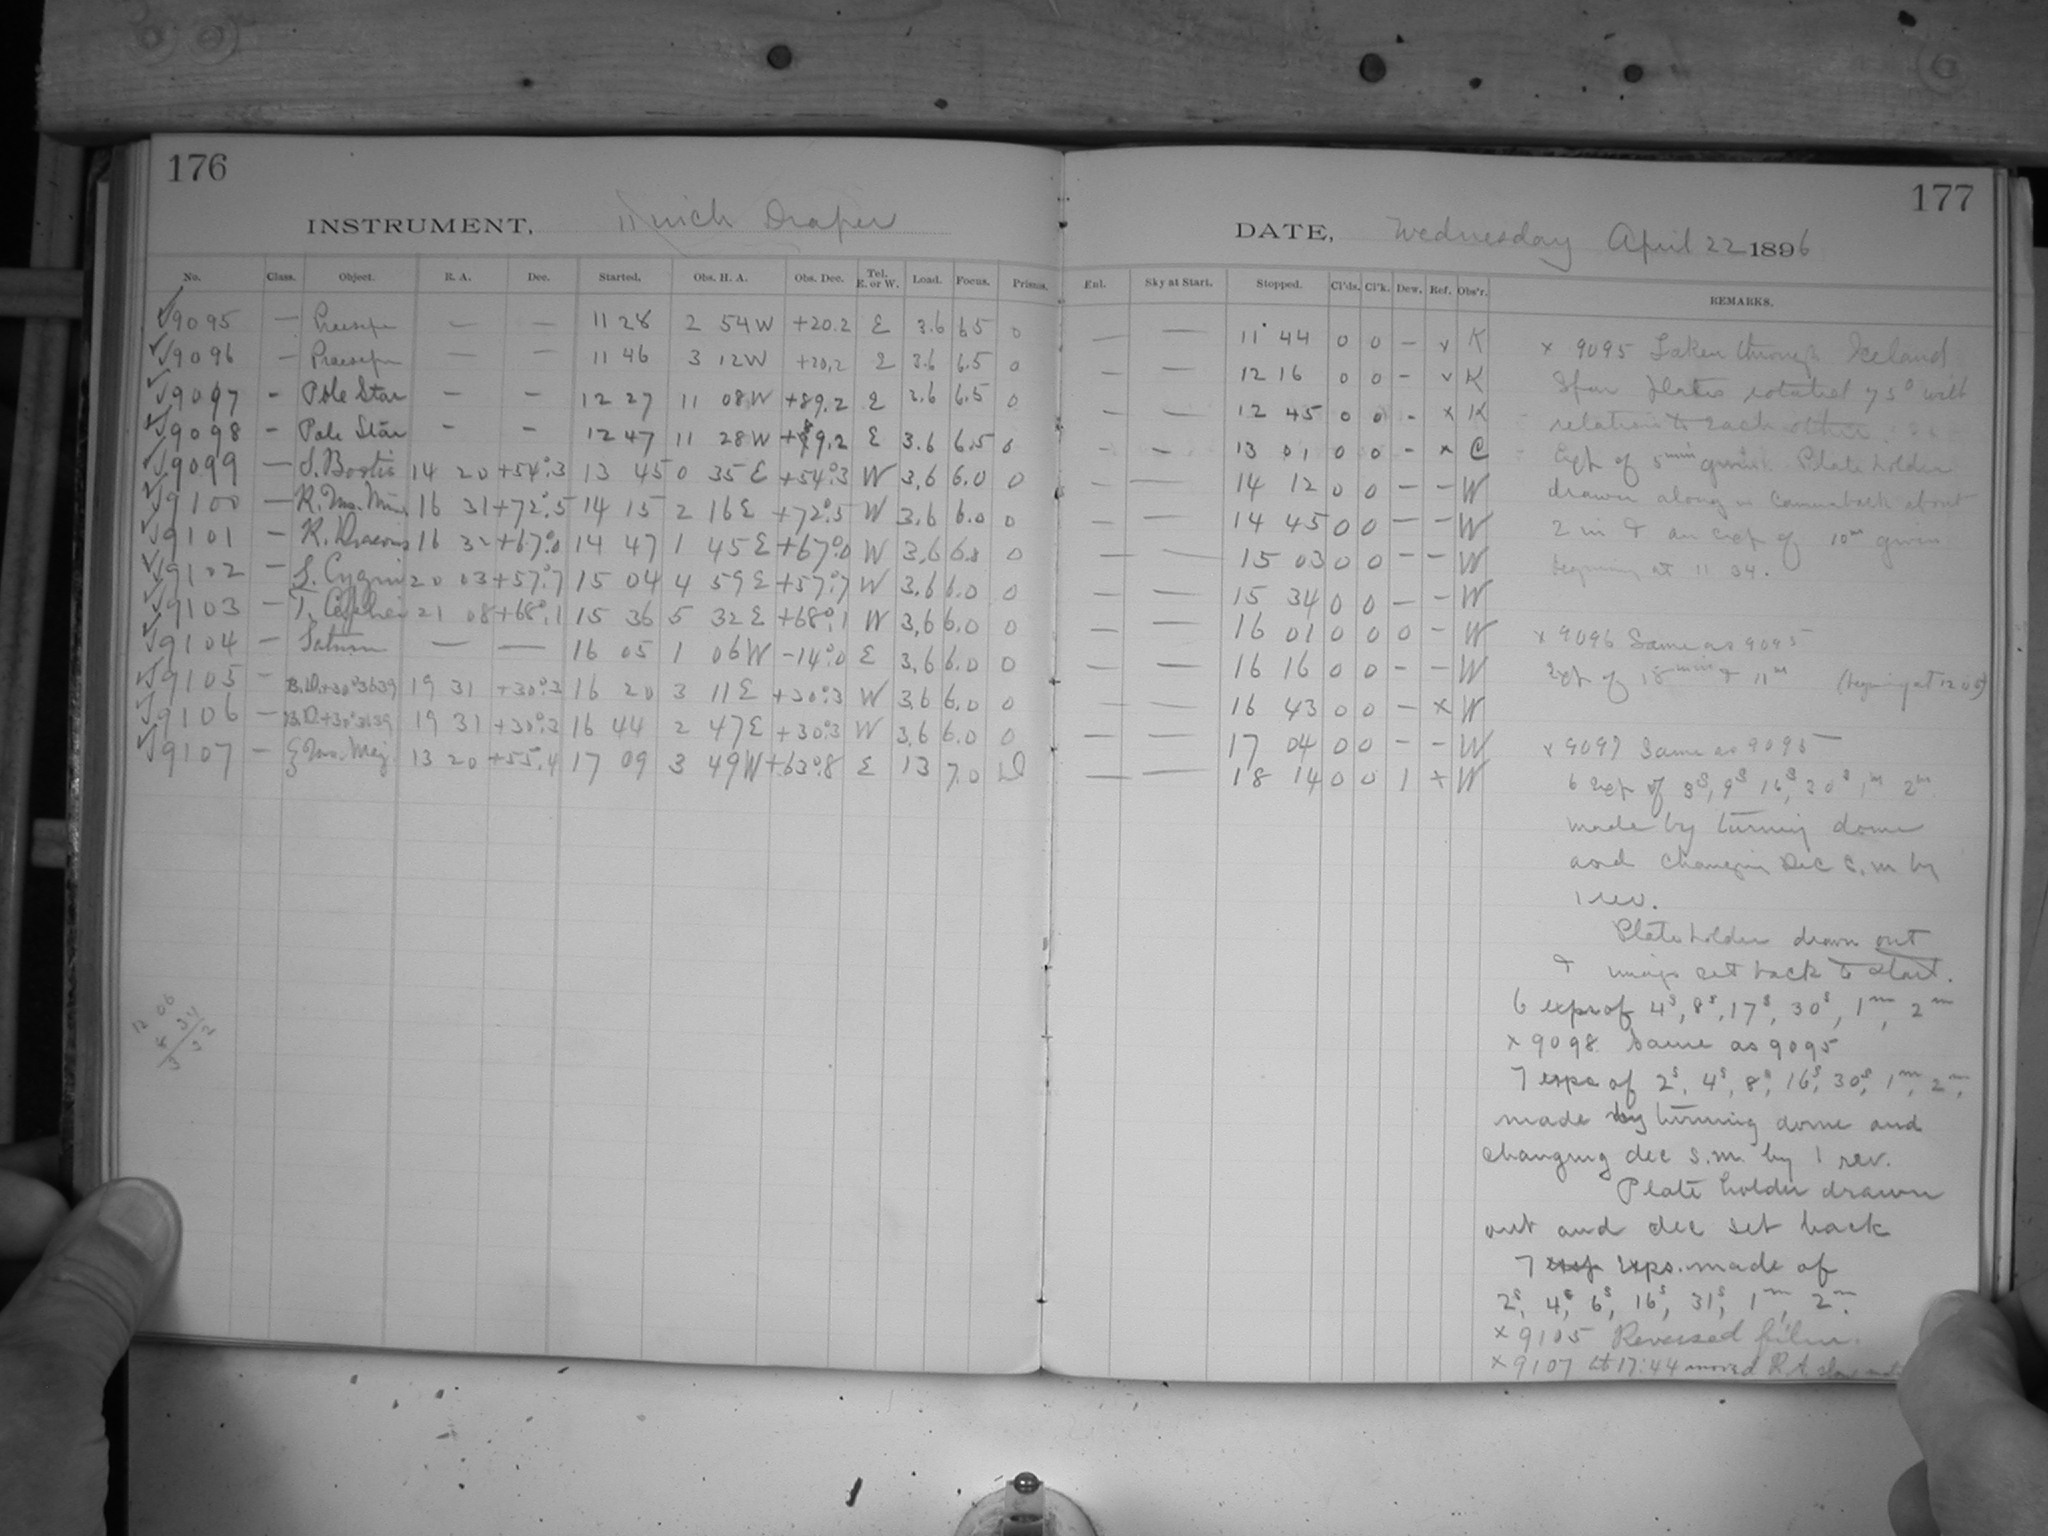 176
INSTRUMENT, 11 inch Draper
No. Class. Object. R. A. Dec. Started. Obs. H. A. Obs. Dec. Tel. E. or W. Load. Focus. Prisms.
√9095 — Praesepe — — 11 28 2 54 W +20.2 E 3.6 6.5 0
√9096 — Praesepe — — 11 46 3 12 W +20.2 E 3.6 6.5 0
√9097 - Pole Star — — 12 27 11 08 W +89.2 E 3.6 6.5 0
√9098 - Pole Star - - 12 47 11 28 W +89.2 E 3.6 6.5 0
√9099 — S. Bootis 14 20 +54°.3 13 45 0 35 E +54°.3 W 3.6 6.0 0
√9100 — R. Urs. Min. 16 31 +72°.5 14 15 2 16 E +72°.5 W 3.6 6.0 0
√9101 — R. Draconis 16 32 +67°.0 14 47 1 45 E +67°.0 W 3.6 6.0 0
√9102 — S. Cygni 20 03 +57°.7 15 04 4 59 E +57°.7 W 3.6 6.0 0
√9103 — T. Cephei 21 08 +68°.1 15 36 5 32 E +68°.1 W 3.6 6.0 0
√9104 — Saturn — — 16 05 1 06 W -14°.0 E 3.6 6.0 0
√9105 — B.D.+30°3639 19 31 +30°.3 16 20 3 11 E +30°.3 W 3.6 6.0 0
√9106 — B.D.+30°3639 19 31 +30°.3 16 44 2 47 E +30°.3 W 3.6 6.0 0
√9107 — ξ Urs. Maj. 13 20 +55.4 17 09 3 49 W +63°.8 E 13 7.0
12 06
177
DATE, Wednesday April 22 1896
Enl. Sky at Start. Stopped. Cl'ds. Cl'k. Dew. Ref. Obs'r. REMARKS.
— — 11 44 0 0 - x K
— — 12 16 0 0 - x K
— — 12 45 0 0 - x K
- - 13 01 0 0 - x C
— — 14 12 0 0 — — W
— — 14 45 0 0 — — W
— — 15 03 0 0 — — W
— — 15 34 0 0 — — W
— — 16 01 0 0 0 - W
— — 16 16 0 0 — — W
— — 16 43 0 0 — x W
— — 17 04 0 0 — — W
— — 18 14 0 0 1 x W
x 9095 Taken through Iceland
Spar plates rotated 75° with
relation to each other.
Exp. of 5 min given. Plate holder
drawn along in camera back about
2 in & an exp of 10m given
beginning at 11 34.
x 9096 Same as 9095
Exp of 18 min & 11m (beginning at 12 05)
x 9097 Same as 9095
6 Exp of 3s, 9s, 16s, 30s, 1m 2m
made by turning dome
and changing Dec S.M. by
1 rev.
Plate holder drawn out
& image set back to start.
6 exps of 4s, 8s, 17s, 30s, 1m, 2m
x 9098. Same as 9095
7 exps of 2s, 4s, 8s, 16s, 30s, 1m, 2m,
made by turning dome and
changing dec s.m. by 1 rev.
Plate holder drawn
out and dec set back
7 exps. made of
2s, 4s, 6s, 16s, 31s, 1m, 2m.
x 9105 Reversed film.
x 9107 At 17:44 moved R.A. slow